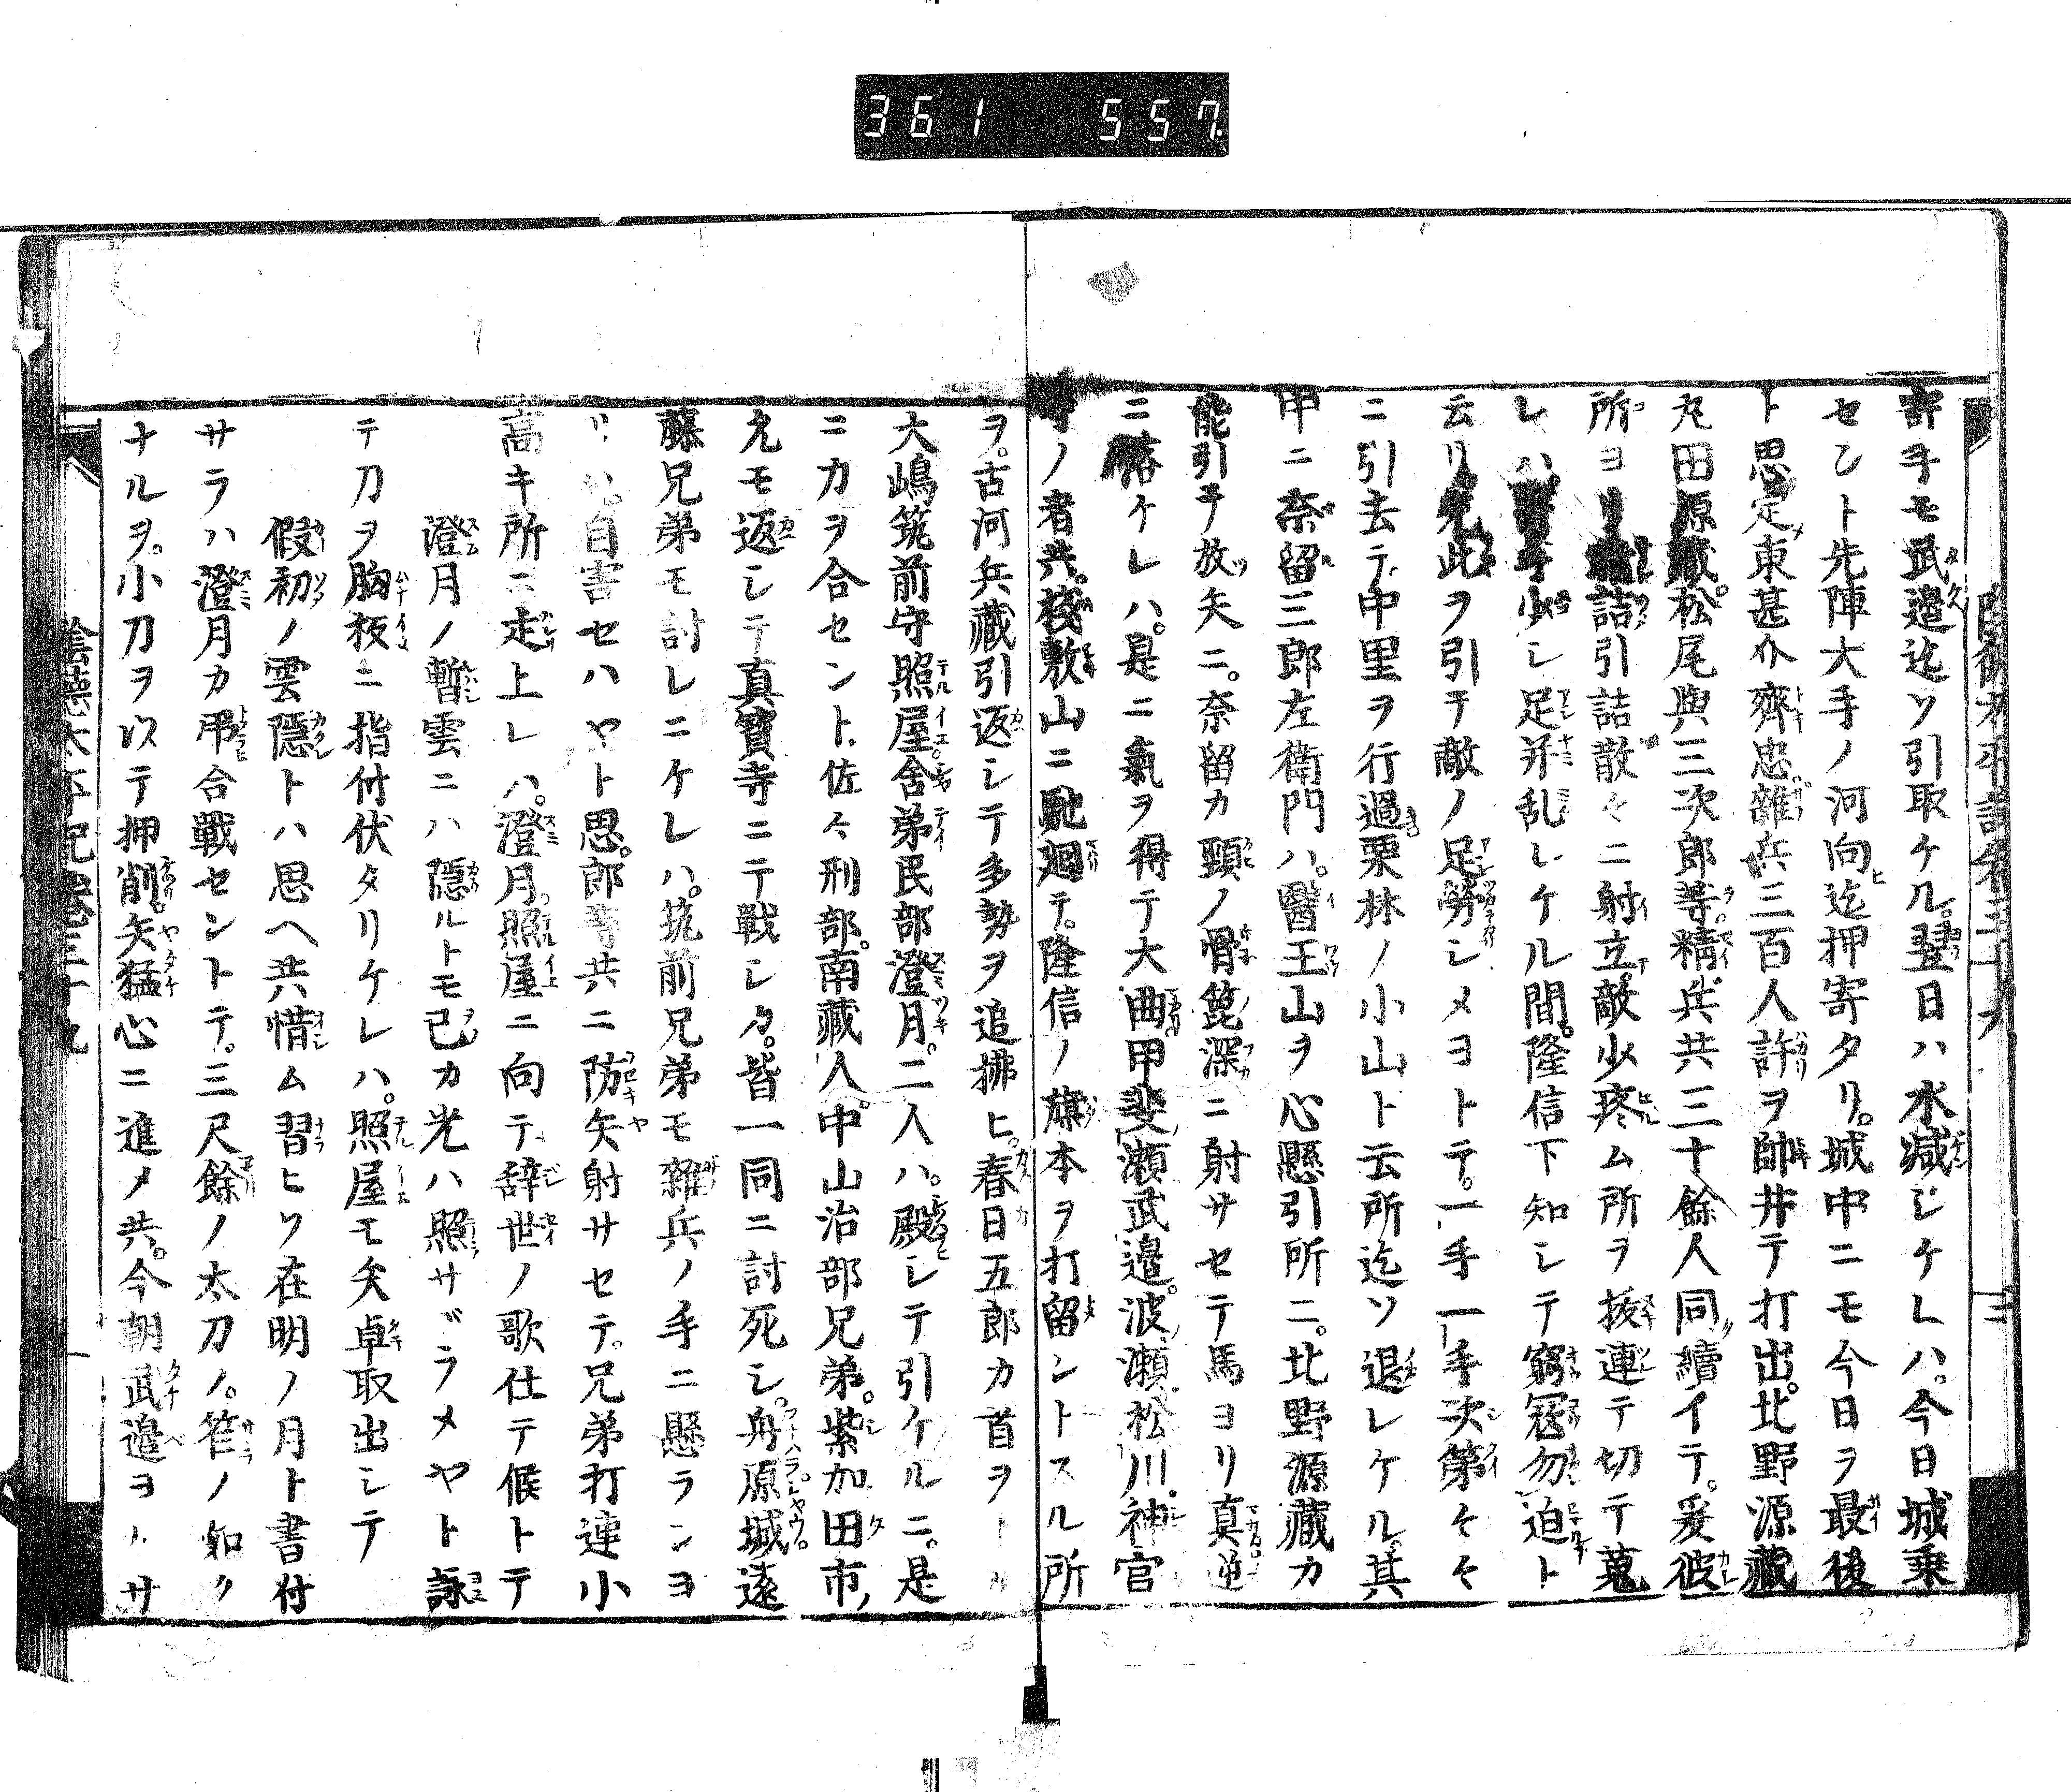 361 557
寄手モ武邉迄ソ引取ケル。翌日ハ水減シケレハ。今日城乗
セント先陣大手ノ河向迄押寄タリ。城中ニモ今日ヲ最後
ト思定東甚介齊忠雜兵三百人許ヲ帥井テ打出。北野源藏
丸田源藏。松尾與三次郎等精兵共三十餘人同續イテ。爰彼
所ヨリ詰引詰散々ニ射立。敵少疼ム所ヲ拔連テ切テ蒐
レハ手少シ足并乱レケル間。隆信下知シテ窮冦勿迫ト
云リ此ヲ引テ敵ノ足勞シメヨトテ。一手一手次第々々
ニ引去テ中里ヲ行過栗林ノ小山ト云所迄ソ退レケル。其
中ニ奈留三郎左衛門ハ。醫王山ヲ心懸引所ニ。北野源藏カ
能引テ放矢ニ。奈留カ頸ノ骨箆深ニ射サセテ馬ヨリ真逆
ニ落ケレハ。是ニ氣ヲ得テ大曲甲斐瀬武邉。波瀬松川。神官
ノ者共。棧敷山ニ馳廻テ。隆信ノ旗本ヲ打留ントスル所
ヲ。古河兵藏引返シテ多勢ヲ追拂ヒ。春日五郎カ首ヲ
大嶋筑前守照屋。舍弟民部澄月。二人ハ。殿シテ引ケルニ。是
ニカヲ合セント佐々刑部。南藏人。中山治部兄弟。紫加田市
允モ返シテ真寳寺ニテ戰シタ。皆一同ニ討死シ。舟原城遠
藤兄弟モ討レニケレハ。筑前兄弟モ雜兵ノ手ニ懸ランヨ
リハ。自害セハヤト思。郎等共ニ防矢射サセテ。兄弟打連小
高キ所ニ走上レハ。澄月。照屋ニ向テ辞世ノ歌仕テ候トテ
澄月ノ暫雲ニハ隱ルトモ己カ光ハ照サヾラメヤト詠
テ刀ヲ胸板ニ指付伏タリケレハ。照屋モ矢卓取出シテ
假初ノ雲隱トハ思ヘ共惜ム習ヒソ在明ノ月ト書付
サラハ澄月カ弔合戰セントテ。三尺餘ノ太刀ノ。筰ノ如ク
ナルヲ。小刀ヲ以テ押削。矢猛心ニ進メ共。今朝武邉ヨトサ
陰德太平記卷三十九